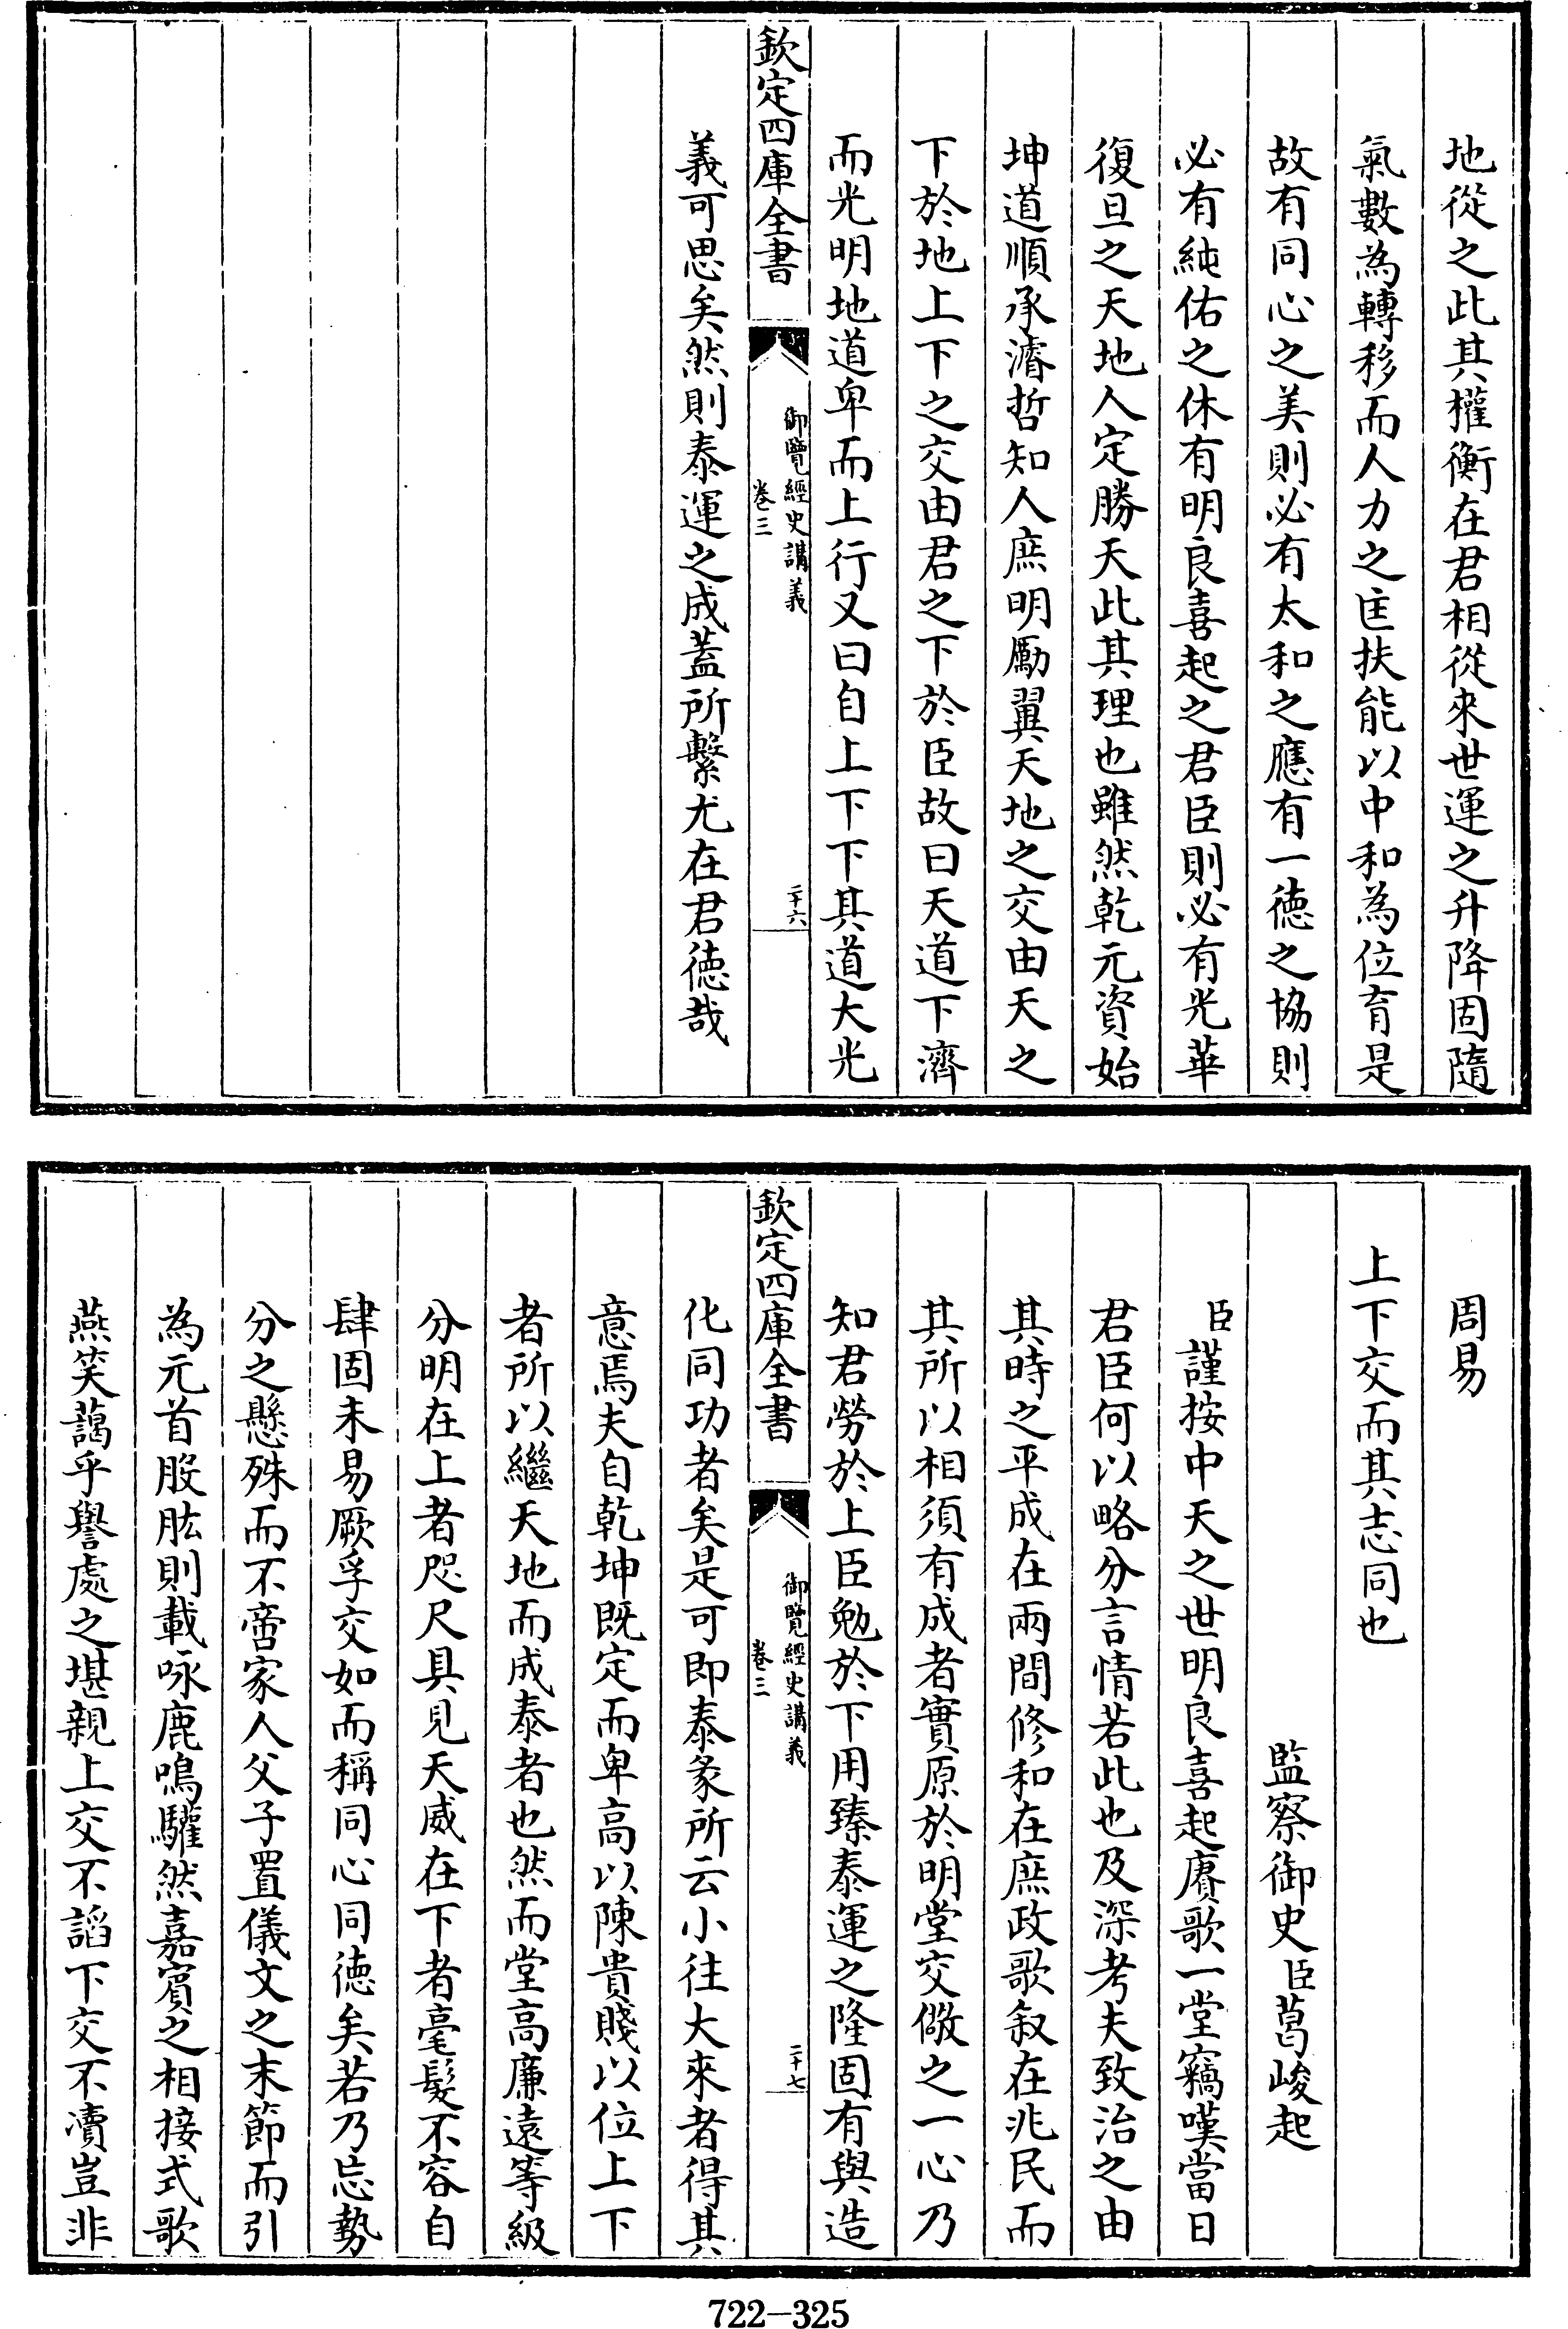 地從之此其權衡在君相從來世運之升降固隨
氣數為轉移而人力之匡扶能以中和為位育是
故有同心之美則必有太和之應有一徳之協則
必有純佑之休有明良喜起之君臣則必有光華
復旦之天地人定勝天此其理也雖然乾元資始
坤道順承濬哲知人庶明勵翼天地之交由天之
下於地上下之交由君之下於臣故曰天道下濟
而光明地道卑而上行又曰自上下下其道大光
欽定四庫全書
御覽經史講義
卷三
二十六
義可思矣然則泰運之成蓋所繫尤在君徳哉
周易
上下交而其志同也
監察御史臣葛峻起
臣謹按中天之世明良喜起賡歌一堂竊嘆當日
君臣何以略分言情若此也及深考夫致治之由
其時之平成在兩間修和在庶政歌叙在兆民而
其所以相須有成者實原於明堂交儆之一心乃
知君勞於上臣勉於下用臻泰運之隆固有與造
欽定四庫全書
御覽經史講義
卷三
二十七
化同功者矣是可即泰彖所云小往大來者得其
意焉夫自乾坤既定而卑高以陳貴賤以位上下
者所以繼天地而成泰者也然而堂高廉遠等級
分明在上者咫尺具見天威在下者毫髮不容自
肆固未易厥孚交如而稱同心同徳矣若乃忘勢
分之懸殊而不啻家人父子置儀文之末節而引
為元首股肱則載咏鹿鳴驩然嘉賓之相接式歌
燕笑藹乎譽處之堪親上交不諂下交不瀆豈非
722-325